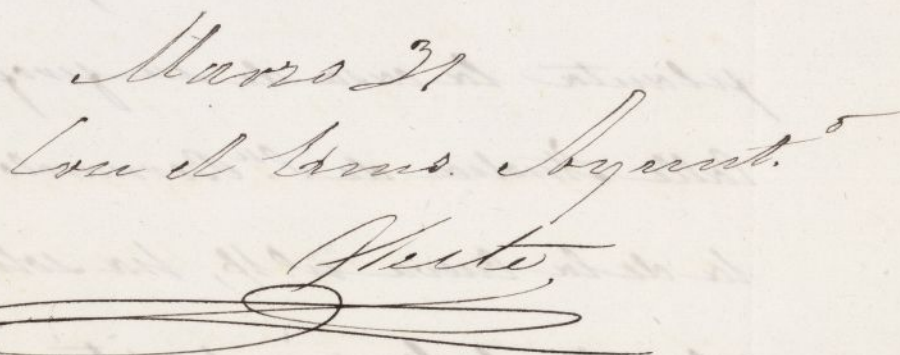 Marzo 31
Con el Exmo. Ayunt.º